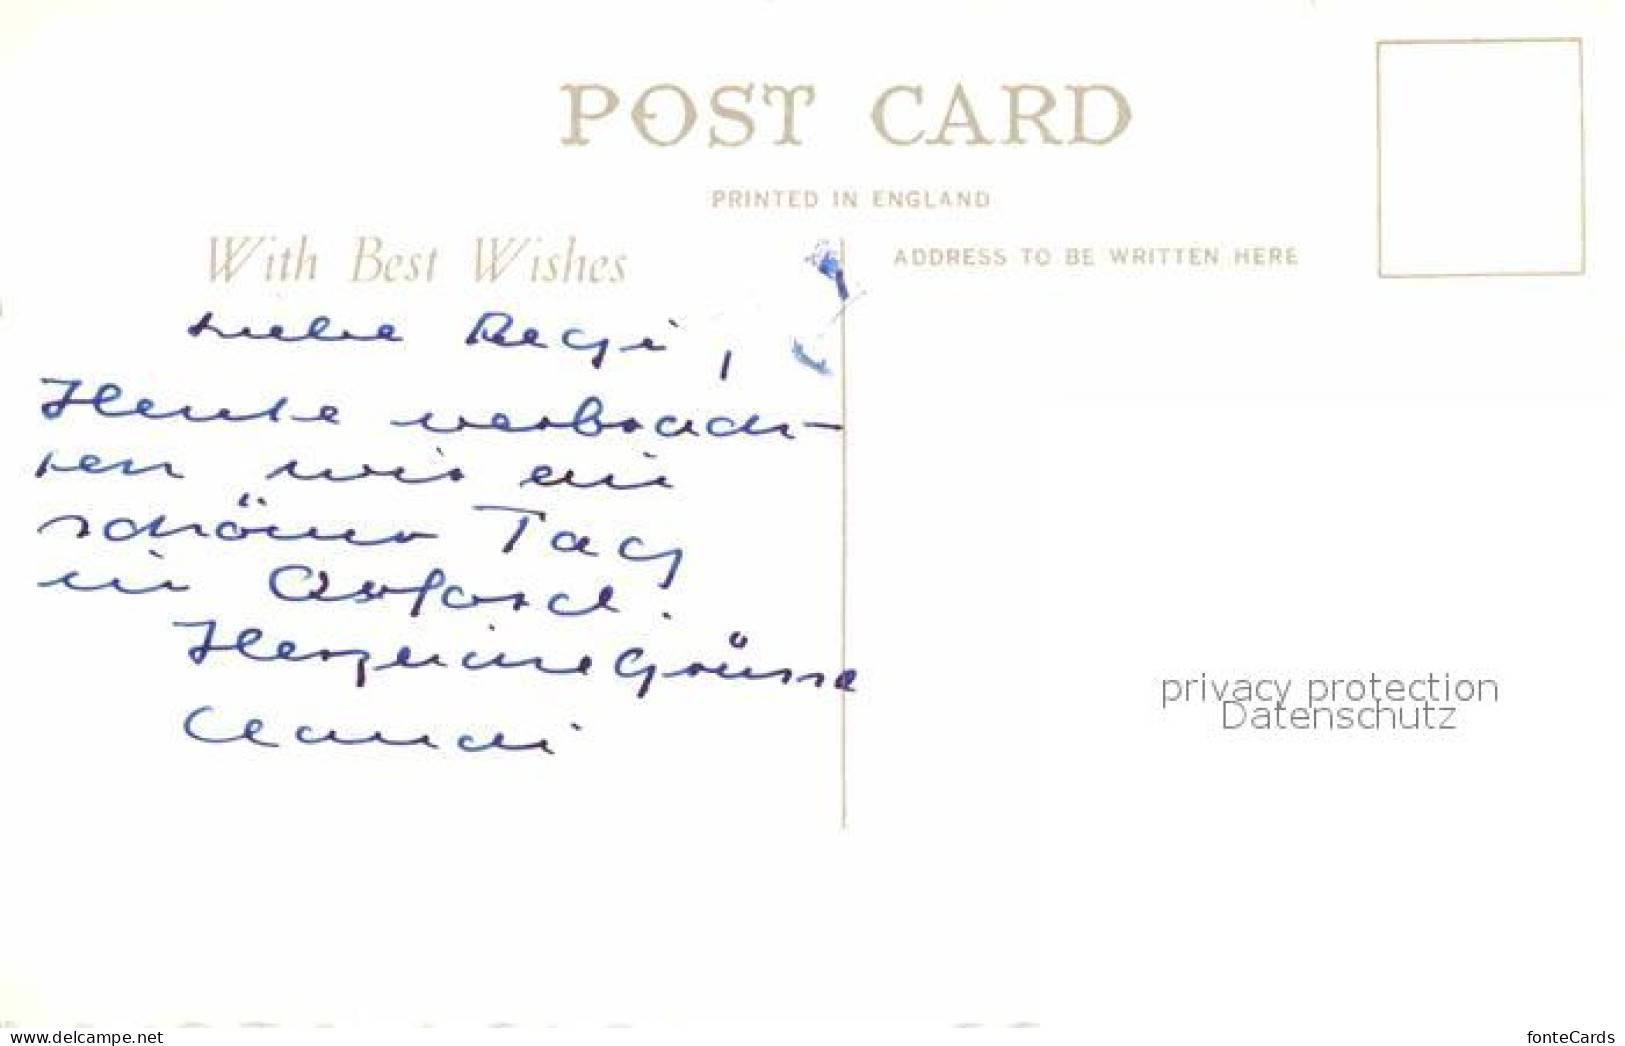 POST CARD
PRINTED IN ENGLAND
With Best Wishes
ADDRESS TO BE WRITTEN HERE
Liebe Regi,
Heute verbrach-
ten wir ein
schöner Tag
in Oxford.
Herzliche Grüsse
Claudi
privacy protection
Datenschutz
www.delcampe.net
fonteCards